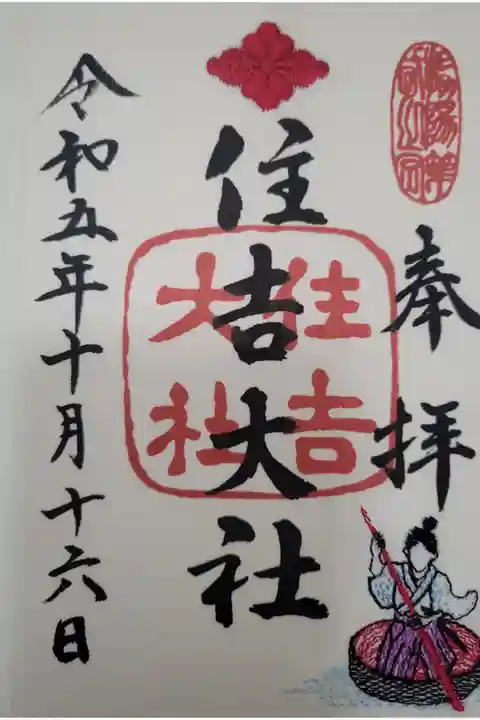 奉拝
住吉大社
住吉大社
令和五年十月十六日